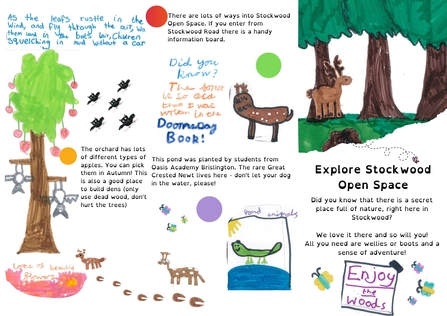 As the leafs rustle in the
Wind, and fly through the air,
them and in you
Squelching in mud without a car
There are lots of ways into Stockwood
Open Space. If you enter from
Stockwood Road there is a handy
information board.
Did you
know?
The
it is old
that I was
written in the
Doomsday
Book!
The orchard has
lots of different
types of
apples. You can pick
them in Autumn! This
is also a good place
to build dens (only
use dead wood, don't
hurt the trees)
This pond was planted by students from
Oasis Academy Brislington. The rare Great
Crested Newt lives here - don't let your dog
in the water, please!
Pond animals
Lots of beautiful
flowers
Explore Stockwood
Open Space
Did you know that there is a secret
place full of nature, right here in
Stockwood?
We love it there and so will you!
All you need are wellies or boots and a
sense of adventure!
Enjoy
the
Woods